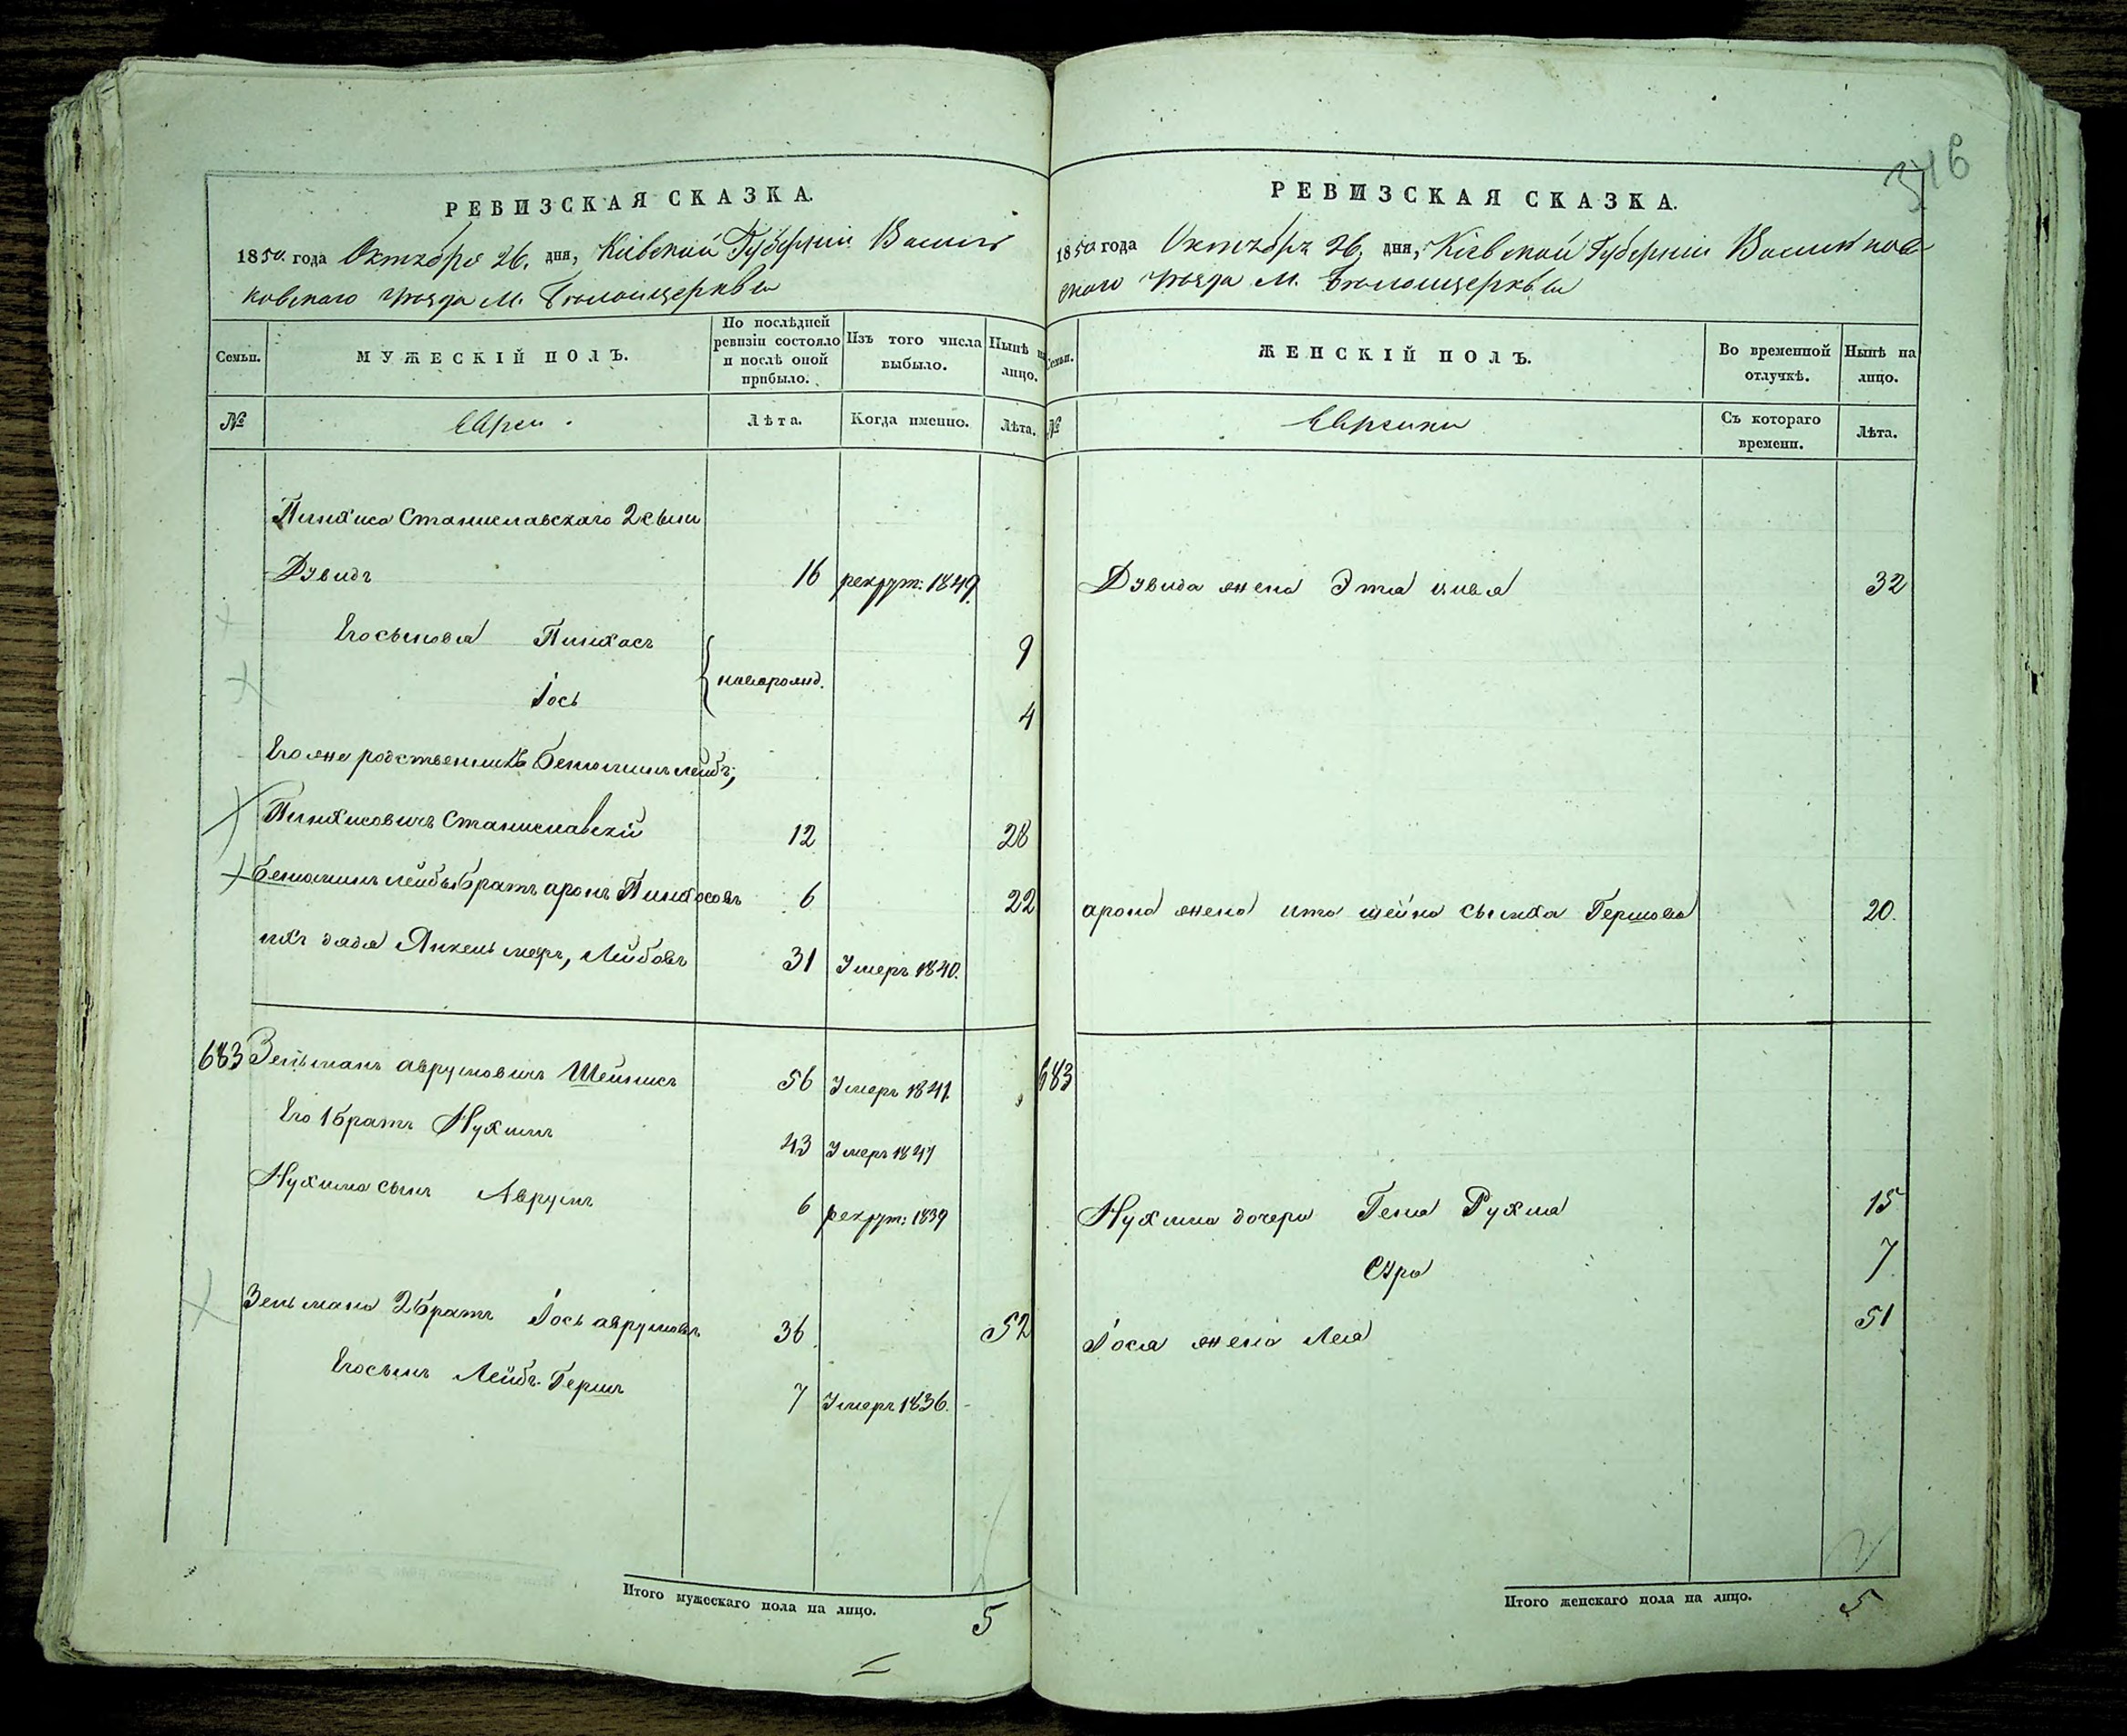 346
РЕВИЗСКАЯ СКАЗКА.
1850 года Октября 26. дня, Кіевской Губерніи Василь
ковскаго уезда м. Белоцеркви
Семьи.
МУЖЕСКІЙ ПОЛЪ.
По послѣдней ревизіи состояло и послѣ оной прибыло.
Изъ того числа выбыло.
Нынѣ на лицо.
№
Евреи.
Лѣта.
Когда именно.
Лѣта.
Пинхаса Станиславскаго 2 сынъ
Дувидъ 16 рекрут: 1849.
Его сыновья Пинхасъ 9
новорожд.
Іось 4
Его же родственникъ Бениоминъ лейбъ,
Пинхисовичъ Станиславскій 12 28
Бениомин лейбы братъ аронъ Пинхосовъ 6 22
ихъ дядя Янкель меер, Лейбовъ 31 Умеръ 1840.
683 Зельманъ аврумовичъ Шейнисъ 56 Умеръ 1841.
Его 1 братъ Нухимъ 43 Умеръ 1847
Нухима сынъ Аврумъ 6 рекрут: 1839
Зельмана 2 братъ Іось аврумовъ 36 52
Его сынъ Лейбъ Гершъ 7 Умеръ 1836.
Итого мужескаго пола на лицо. 5
РЕВИЗСКАЯ СКАЗКА.
1850 года Октября 26. дня, Кіевской Губерніи Васильков
скаго уезда м. Белоцеркви
Семьи.
ЖЕНСКІЙ ПОЛЪ.
Во временной отлучкѣ.
Нынѣ на лицо.
№
Еврейки
Съ котораго времени.
Лѣта.
Дувида жена Эта цивья 32
арона жена ита шейна сынха Гершова 20.
683
Нухима дочери Геня Рухля 15
Сура 7
Іося жена Лея 51
Итого женскаго пола на лицо. 5